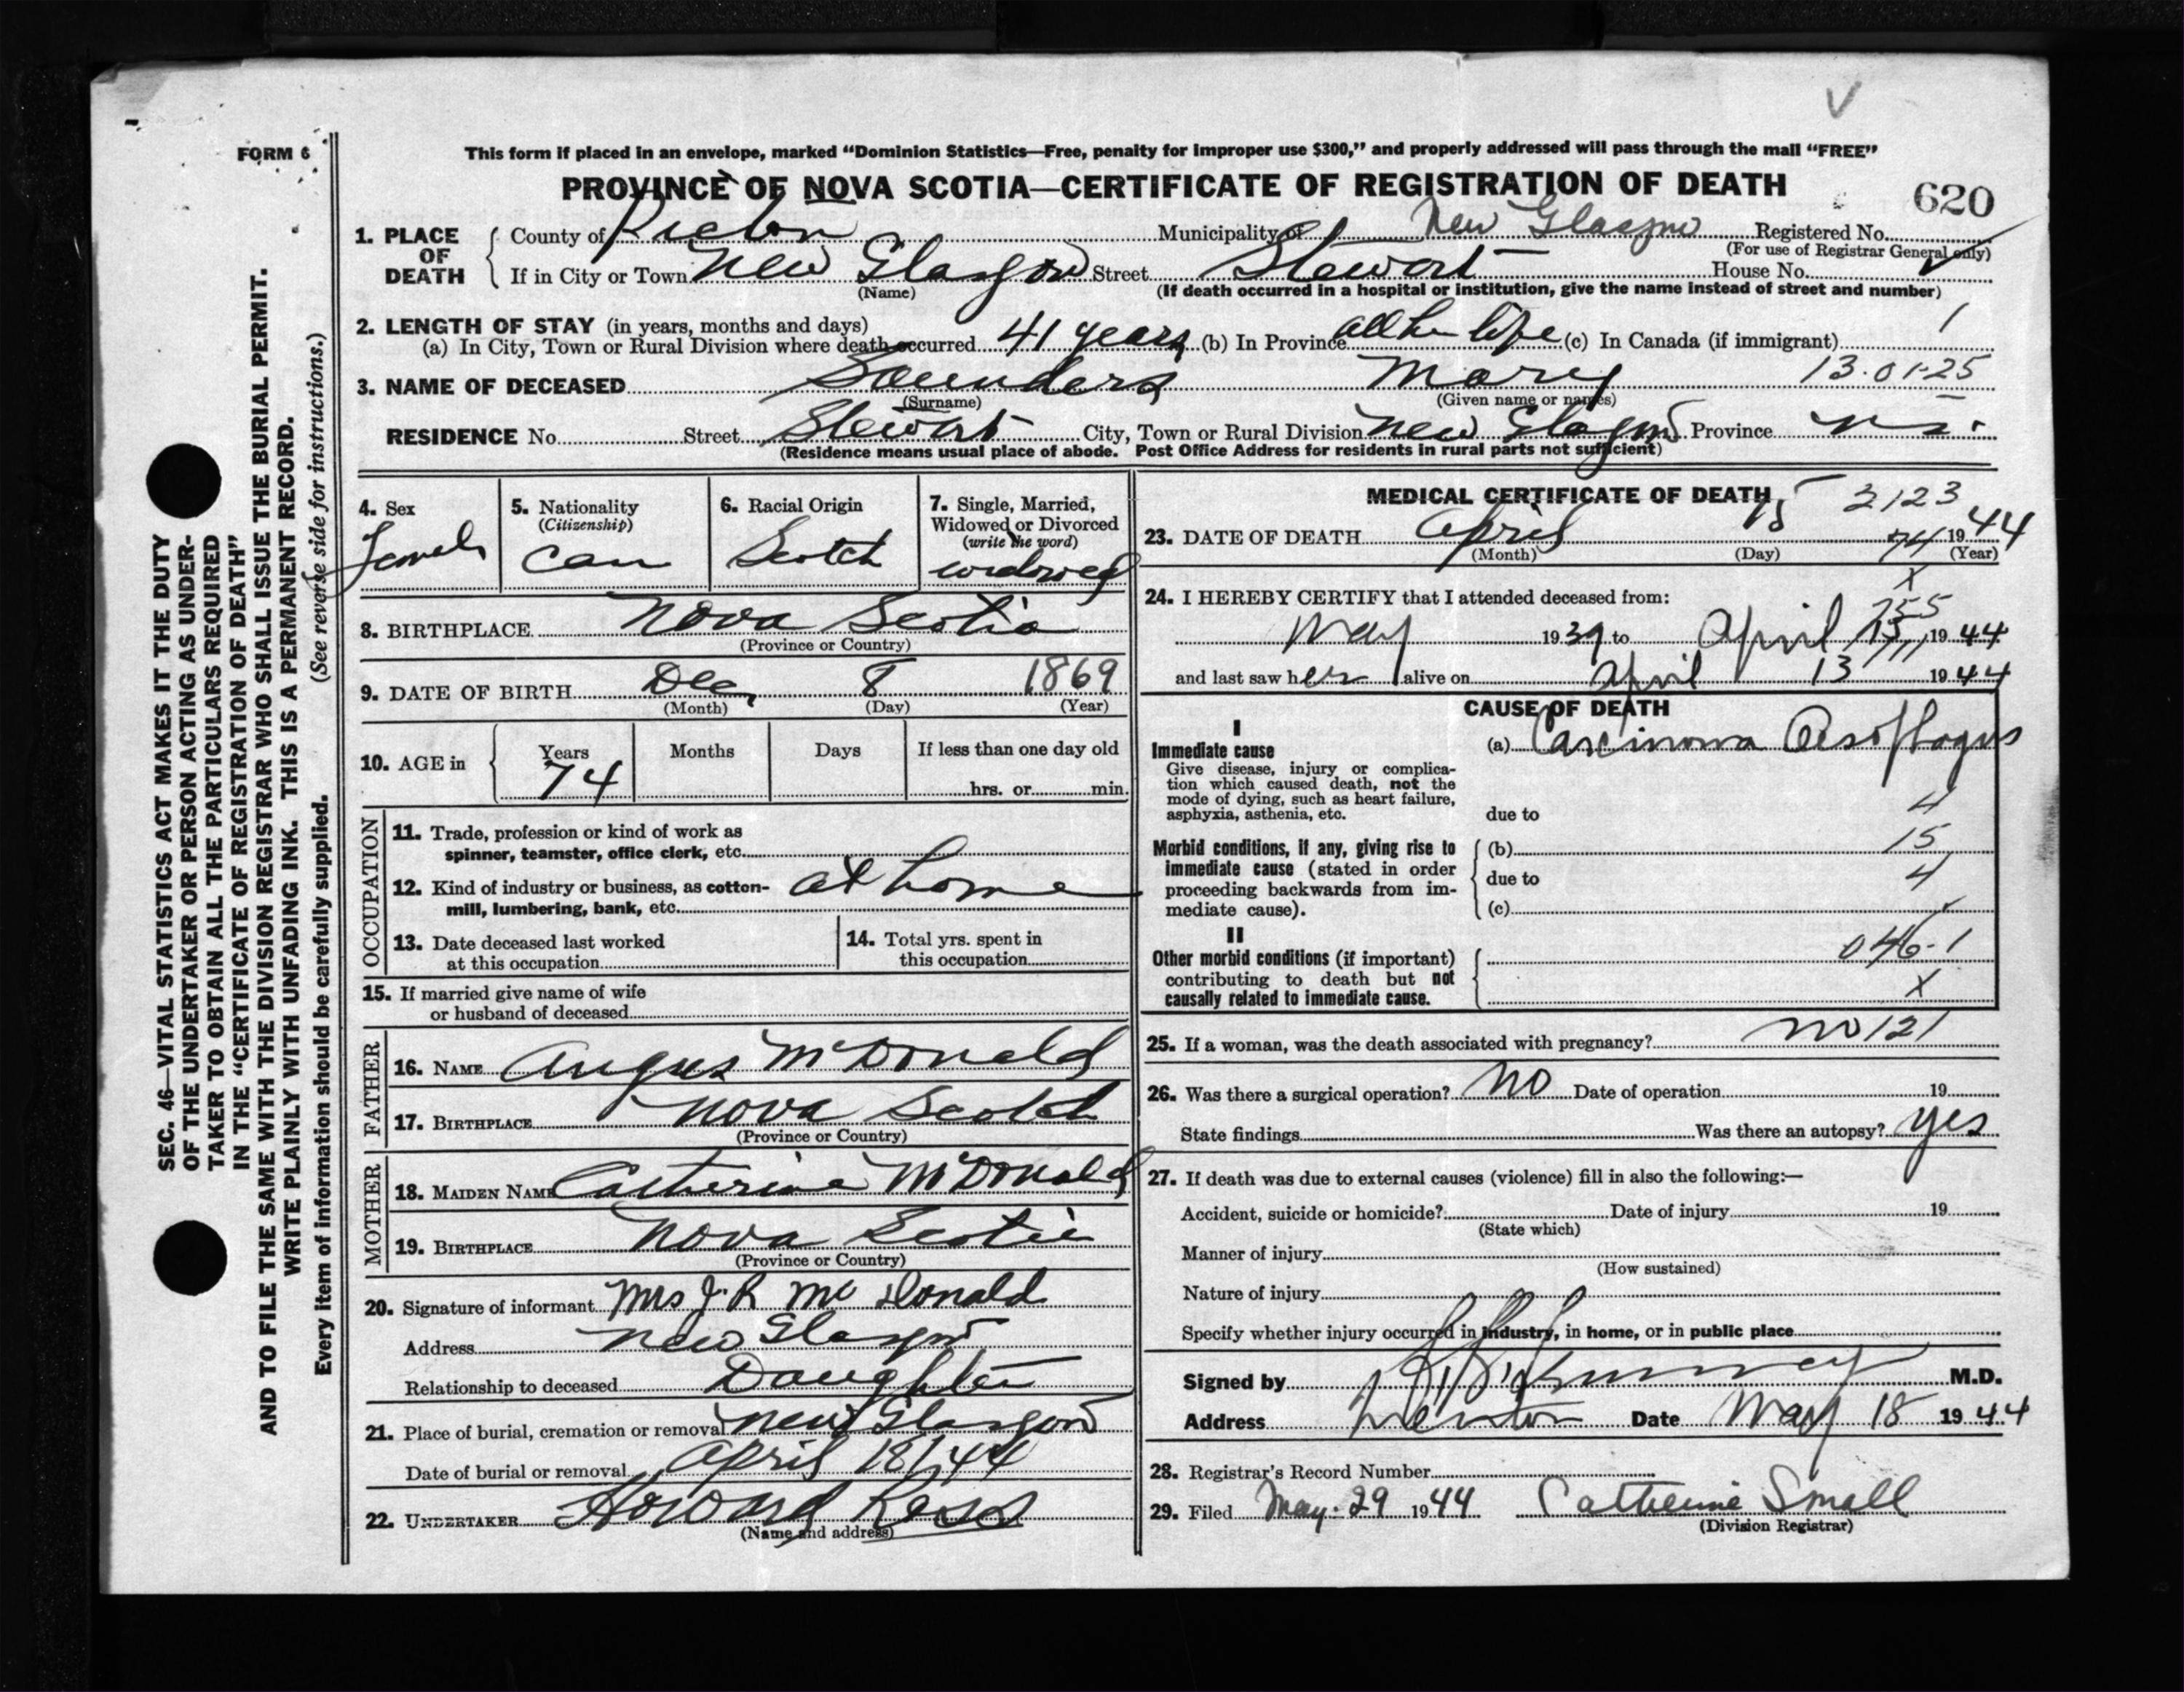 FORM 6
This form if placed in an envelope, marked “Dominion Statistics—Free, penalty for improper use $300,” and properly addressed will pass through the mail “FREE”
PROVINCE OF NOVA SCOTIA—CERTIFICATE OF REGISTRATION OF DEATH
620
1. PLACE OF DEATH
County of Pictou Municipality of New Glasgow Registered No.
(For use of Registrar General only)
If in City or Town New Glasgow Street Stewart House No.
(Name) (If death occurred in a hospital or institution, give the name instead of street and number)
2. LENGTH OF STAY (in years, months and days)
(a) In City, Town or Rural Division where death occurred 41 years (b) In Province all her life (c) In Canada (if immigrant) 1
3. NAME OF DECEASED Saunders Mary 13.01-25
(Surname) (Given name or names)
RESIDENCE No. Street Stewart City, Town or Rural Division New Glasgow Province N.S.
(Residence means usual place of abode. Post Office Address for residents in rural parts not sufficient)
4. Sex Female
5. Nationality (Citizenship) Can
6. Racial Origin Scotch
7. Single, Married, Widowed or Divorced (write the word) widowed
8. BIRTHPLACE Nova Scotia
(Province or Country)
9. DATE OF BIRTH Dec 8 1869
(Month) (Day) (Year)
10. AGE in Years 74 Months Days If less than one day old
hrs. or min.
OCCUPATION
11. Trade, profession or kind of work as
spinner, teamster, office clerk, etc.
12. Kind of industry or business, as cotton- at home
mill, lumbering, bank, etc.
13. Date deceased last worked
at this occupation
14. Total yrs. spent in
this occupation
15. If married give name of wife
or husband of deceased
FATHER
16. NAME Angus McDonald
17. BIRTHPLACE Nova Scotia
(Province or Country)
MOTHER
18. MAIDEN NAME Catherine McDonald
19. BIRTHPLACE Nova Scotia
(Province or Country)
20. Signature of informant Mrs J. R McDonald
Address New Glasgow
Relationship to deceased Daughter
21. Place of burial, cremation or removal New Glasgow
Date of burial or removal April 18/44
22. UNDERTAKER Howard Ross
(Name and address)
MEDICAL CERTIFICATE OF DEATH 2123
23. DATE OF DEATH April 15 74 1944
(Month) (Day) (Year)
X
24. I HEREBY CERTIFY that I attended deceased from:
May 1939 to April 15 1944
and last saw her alive on April 13 1944
CAUSE OF DEATH
I
Immediate cause (a) Carcinoma Oesophagus
Give disease, injury or complica-
tion which caused death, not the
mode of dying, such as heart failure,
asphyxia, asthenia, etc.
due to 4
Morbid conditions, if any, giving rise to (b) 15
immediate cause (stated in order due to 4
proceeding backwards from im-
mediate cause). (c)
II
Other morbid conditions (if important) 046-1
contributing to death but not
causally related to immediate cause. X
25. If a woman, was the death associated with pregnancy? no 121
26. Was there a surgical operation? no Date of operation 19
State findings Was there an autopsy? yes
27. If death was due to external causes (violence) fill in also the following:—
Accident, suicide or homicide? Date of injury 19
(State which)
Manner of injury
(How sustained)
Nature of injury
Specify whether injury occurred in industry, in home, or in public place
Signed by M.D.
Address Trenton Date May 18 1944
28. Registrar's Record Number
29. Filed May 29 1944 Catherine Small
(Division Registrar)
SEC. 46—VITAL STATISTICS ACT MAKES IT THE DUTY
OF THE UNDERTAKER OR PERSON ACTING AS UNDER-
TAKER TO OBTAIN ALL THE PARTICULARS REQUIRED
IN THE “CERTIFICATE OF REGISTRATION OF DEATH”
AND TO FILE THE SAME WITH THE DIVISION REGISTRAR WHO SHALL ISSUE THE BURIAL PERMIT.
WRITE PLAINLY WITH UNFADING INK. THIS IS A PERMANENT RECORD.
Every item of information should be carefully supplied. (See reverse side for instructions.)